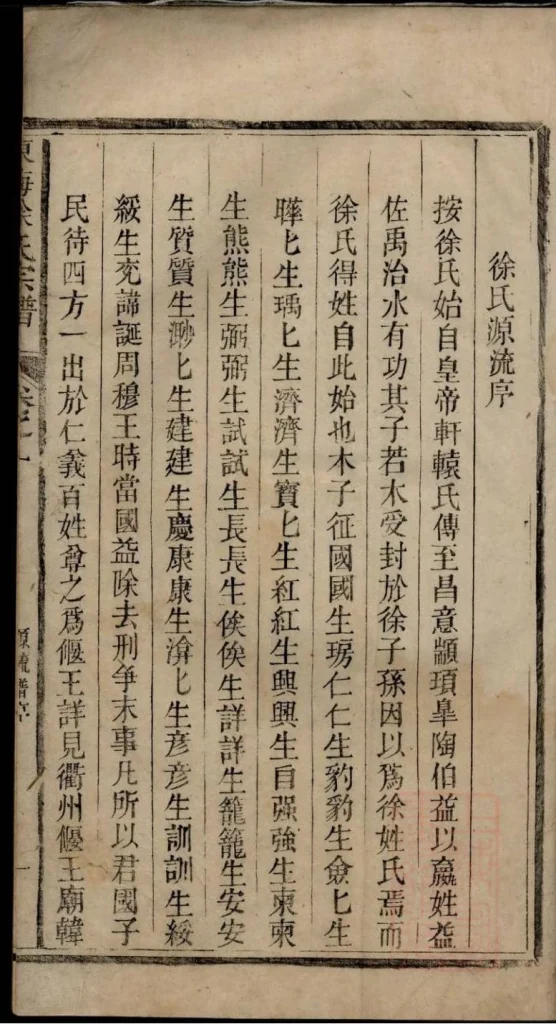 徐氏源流序
按徐氏始自皇帝軒轅氏傳至昌意顓頊臯陶伯益以嬴姓益
佐禹治水有功其子若木受封於徐子孫因以爲徐姓氏焉而
徐氏得姓自此始也木子征國國生琈仁仁生豹豹生僉匕生
瞱匕生瑀匕生濟濟生寶匕生紅紅生興興生自强強生柬柬
生熊熊生弼弼生試試生長長生俟俟生詳詳生籠籠生安安
生質質生渺匕生建建生慶康康生渰匕生彦彦生訓訓生綏
綏生兖諱誕周穆王時當國益除去刑争末事凡所以君國子
民待四方一出於仁義百姓尊之爲偃王詳見衢州偃王廟韓
東海徐氏宗譜
卷之一
源流譜序
一